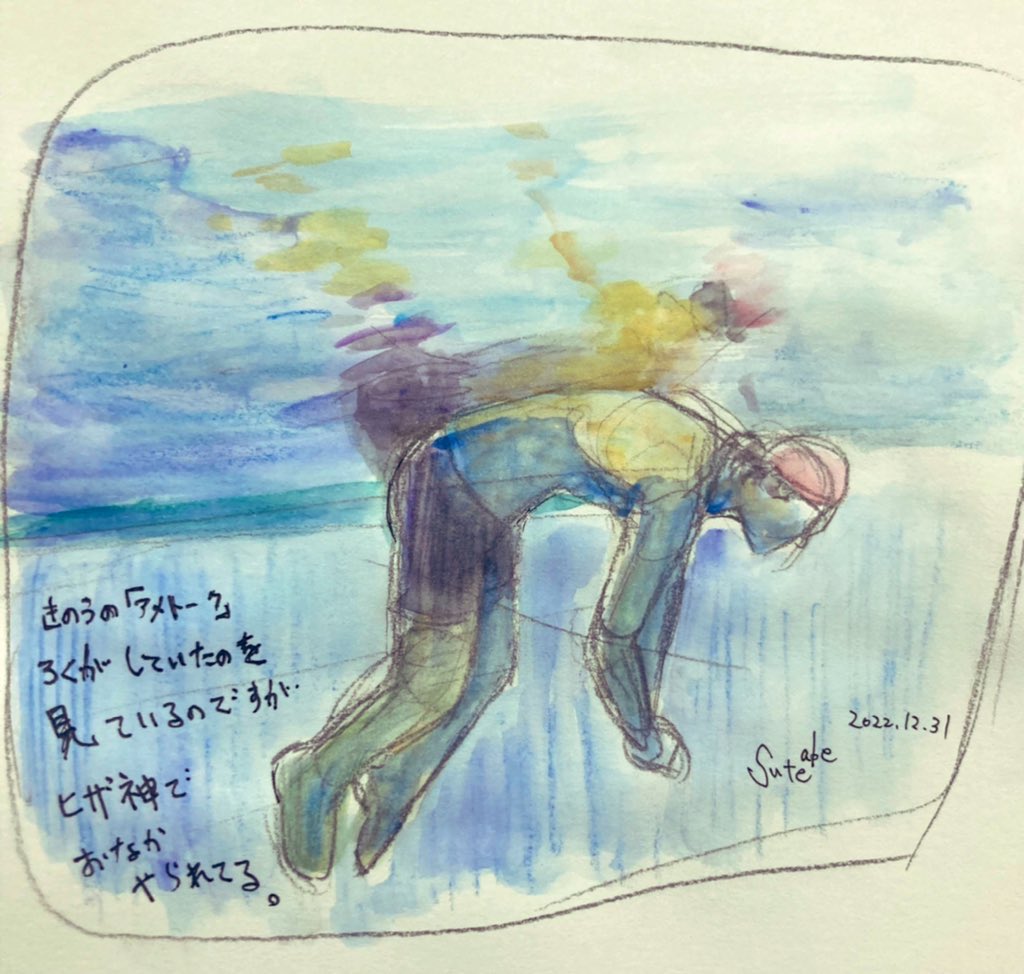 きのうの「アメトーク」
ろくがしていたのを
見ているのですが
ヒザ神で
おなか
やられてる。
2022.12.31
Suteabe